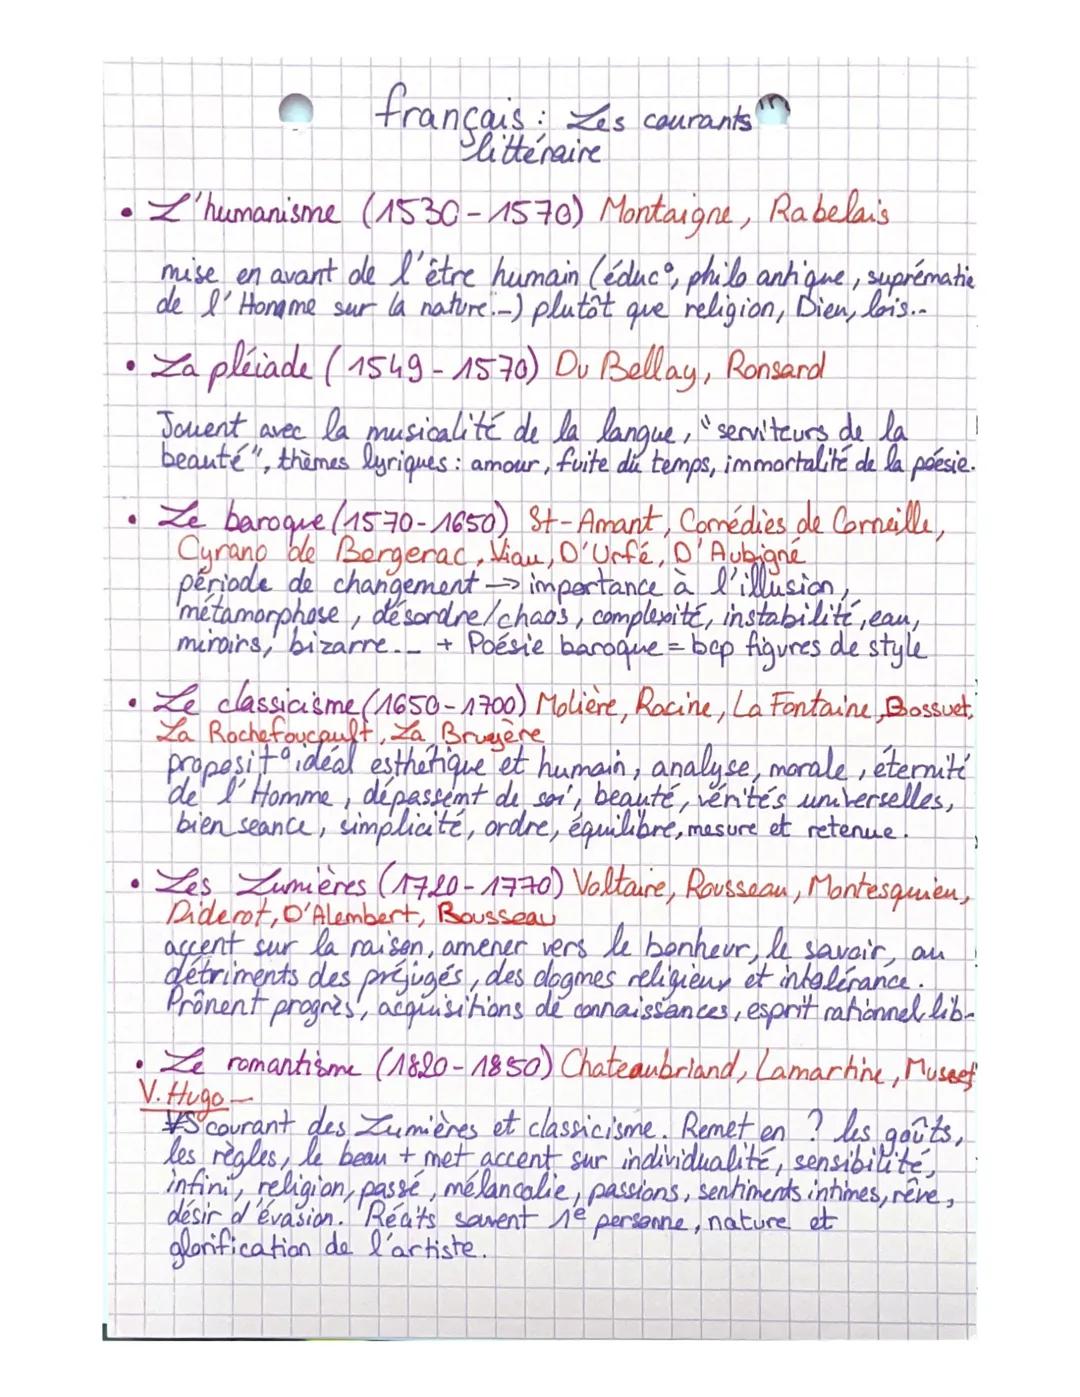 français : Les courants
littéraire
• L'humanisme (1530-1570) Montaigne, Rabelais
mise en avant de l'être humain (éduc°, philo antique, suprématie
de l'Homme sur la nature...) plutôt que religion, Dieu, lois...
• La pléiade (1549-1570) Du Bellay, Ronsard
Jouent avec la musicalité de la langue, "serviteurs de la
beauté", thèmes lyriques : amour, fuite du temps, immortalité de la poésie.
• Le baroque (1570-1650) St-Amant, Comédies de Corneille,
Cyrano de Bergerac, Viau, D'Urfé, D'Aubigné
période de changement → importance à l'illusion,
métamorphose, désordre/chaos, complexité, instabilité, eau,
miroirs, bizarre... + Poésie baroque = bcp figures de style
• Le classicisme (1650-1700) Molière, Racine, La Fontaine, Bossuet,
La Rochefoucault, La Bruyère
proposit° idéal esthétique et humain, analyse, morale, éternité
de l'Homme, dépassemt de soi, beauté, vérités universelles,
bien seance, simplicité, ordre, équilibre, mesure et retenue.
• Les Lumières (1720-1770) Voltaire, Rousseau, Montesquieu,
Diderot, D'Alembert, Rousseau
accent sur la raison, amener vers le bonheur, le savoir, au
détriments des préjugés, des dogmes religieux et intolérance.
Prônent progrès, acquisitions de connaissances, esprit rationnel lib-
• Le romantisme (1820-1850) Chateaubriand, Lamartine, Musset
V. Hugo -
VS courant des Lumières et classicisme. Remet en ? les goûts,
les règles, le beau + met accent sur individualité, sensibilité,
infini, religion, passé, mélancolie, passions, sentiments intimes, rêve,
désir d'évasion. Récits souvent 1e personne, nature et
glorification de l'artiste.